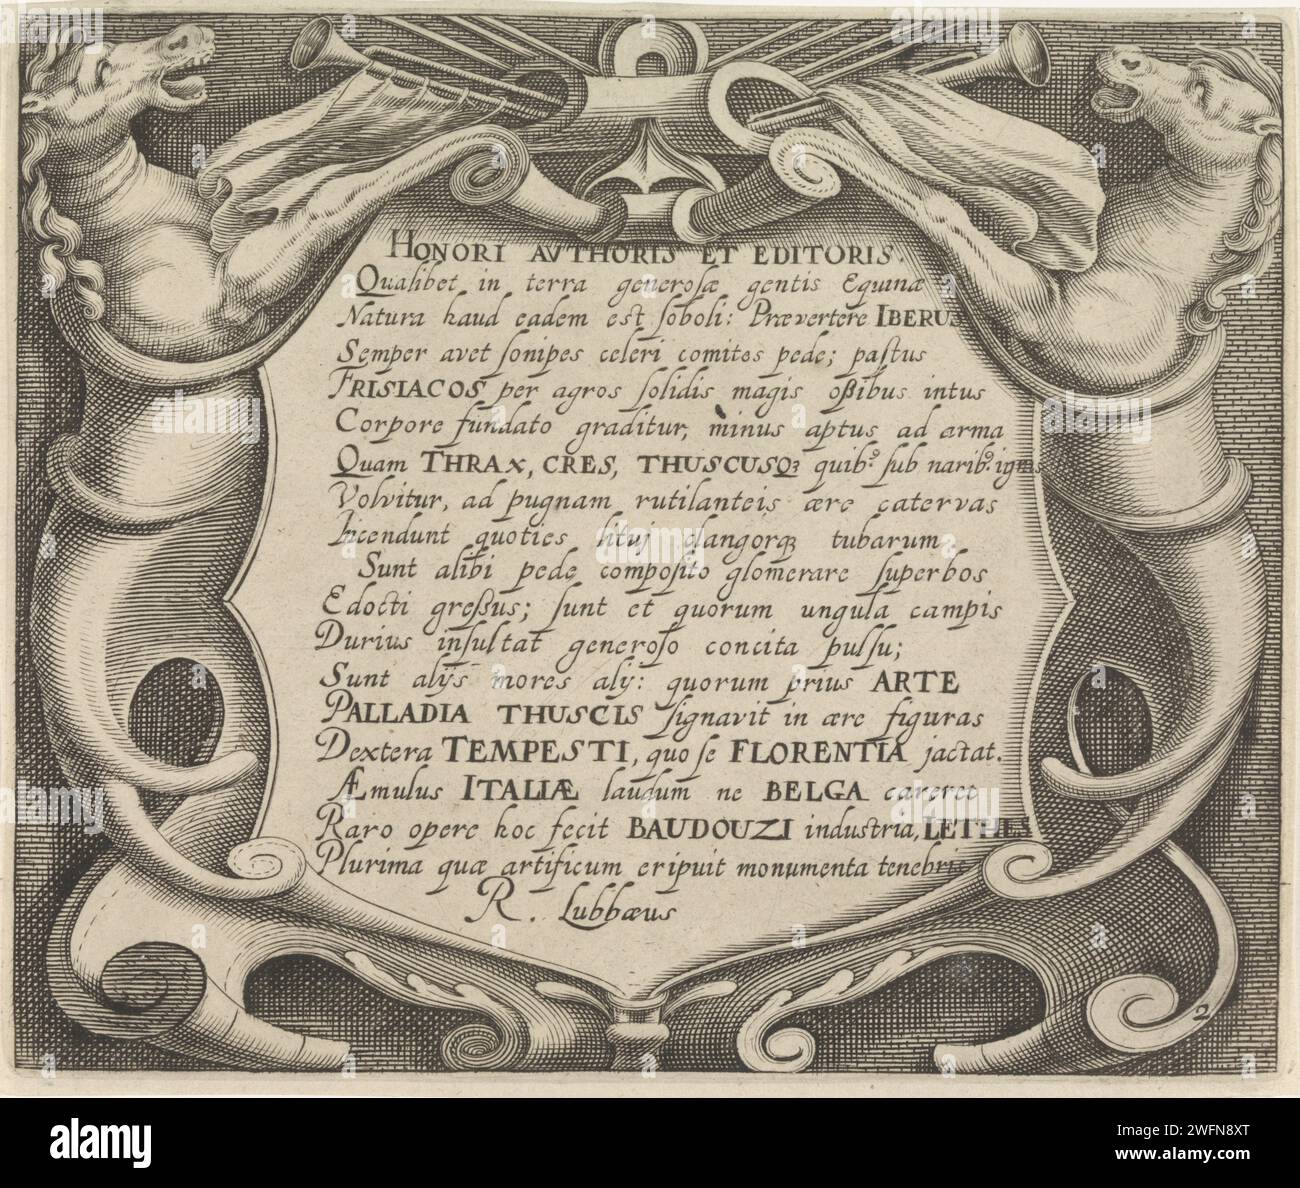 HONORI AVTHORIS ET EDITORIS.
Qualibet in terra generosæ gentis Equinæ
Natura haud eadem est soboli: Prævertere IBERUS
Semper avet sonipes celeri comites pede; pastus
FRISIACOS per agros solidis magis oßibus intus
Corpore fundato graditur, minus aptus ad arma
Quam THRAX, CRES, THUSCUSQꝫ quibꝰ sub naribꝰ ignis
Volvitur, ad pugnam rutilanteis ære catervas
Incendunt quoties lituj clangorqꝫ tubarum
Sunt alibi pede composito glomerare superbos
Edocti greßus; sunt et quorum ungula campis
Durius insultat generoso concita pulsu;
Sunt alijs mores alij: quorum prius ARTE
PALLADIA THUSCIS signavit in ære figuras
Dextera TEMPESTI, quo se FLORENTIA jactat.
Æmulus ITALIÆ laudum ne BELGA careret
Raro opere hoc fecit BAUDOUZI industria, LETHES
Plurima quæ artificum eripuit monumenta tenebris
R. Lubbæus
2
alamy
Image ID: 2WFN8XT
www.alamy.com